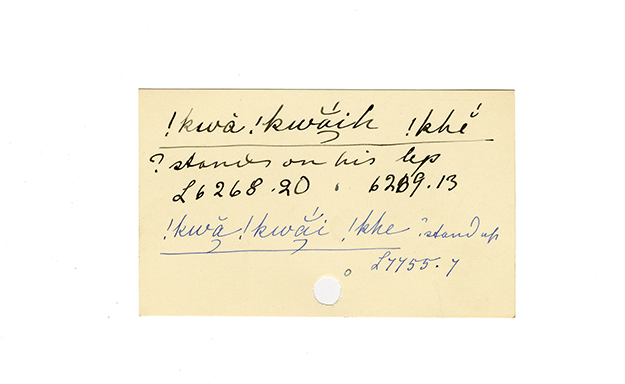 !kwà !kwá̆ih !khé
? stands on his leg
L6268.20 . 6269.13
!kwă !kwắi !khe ? stand up
L7755.7